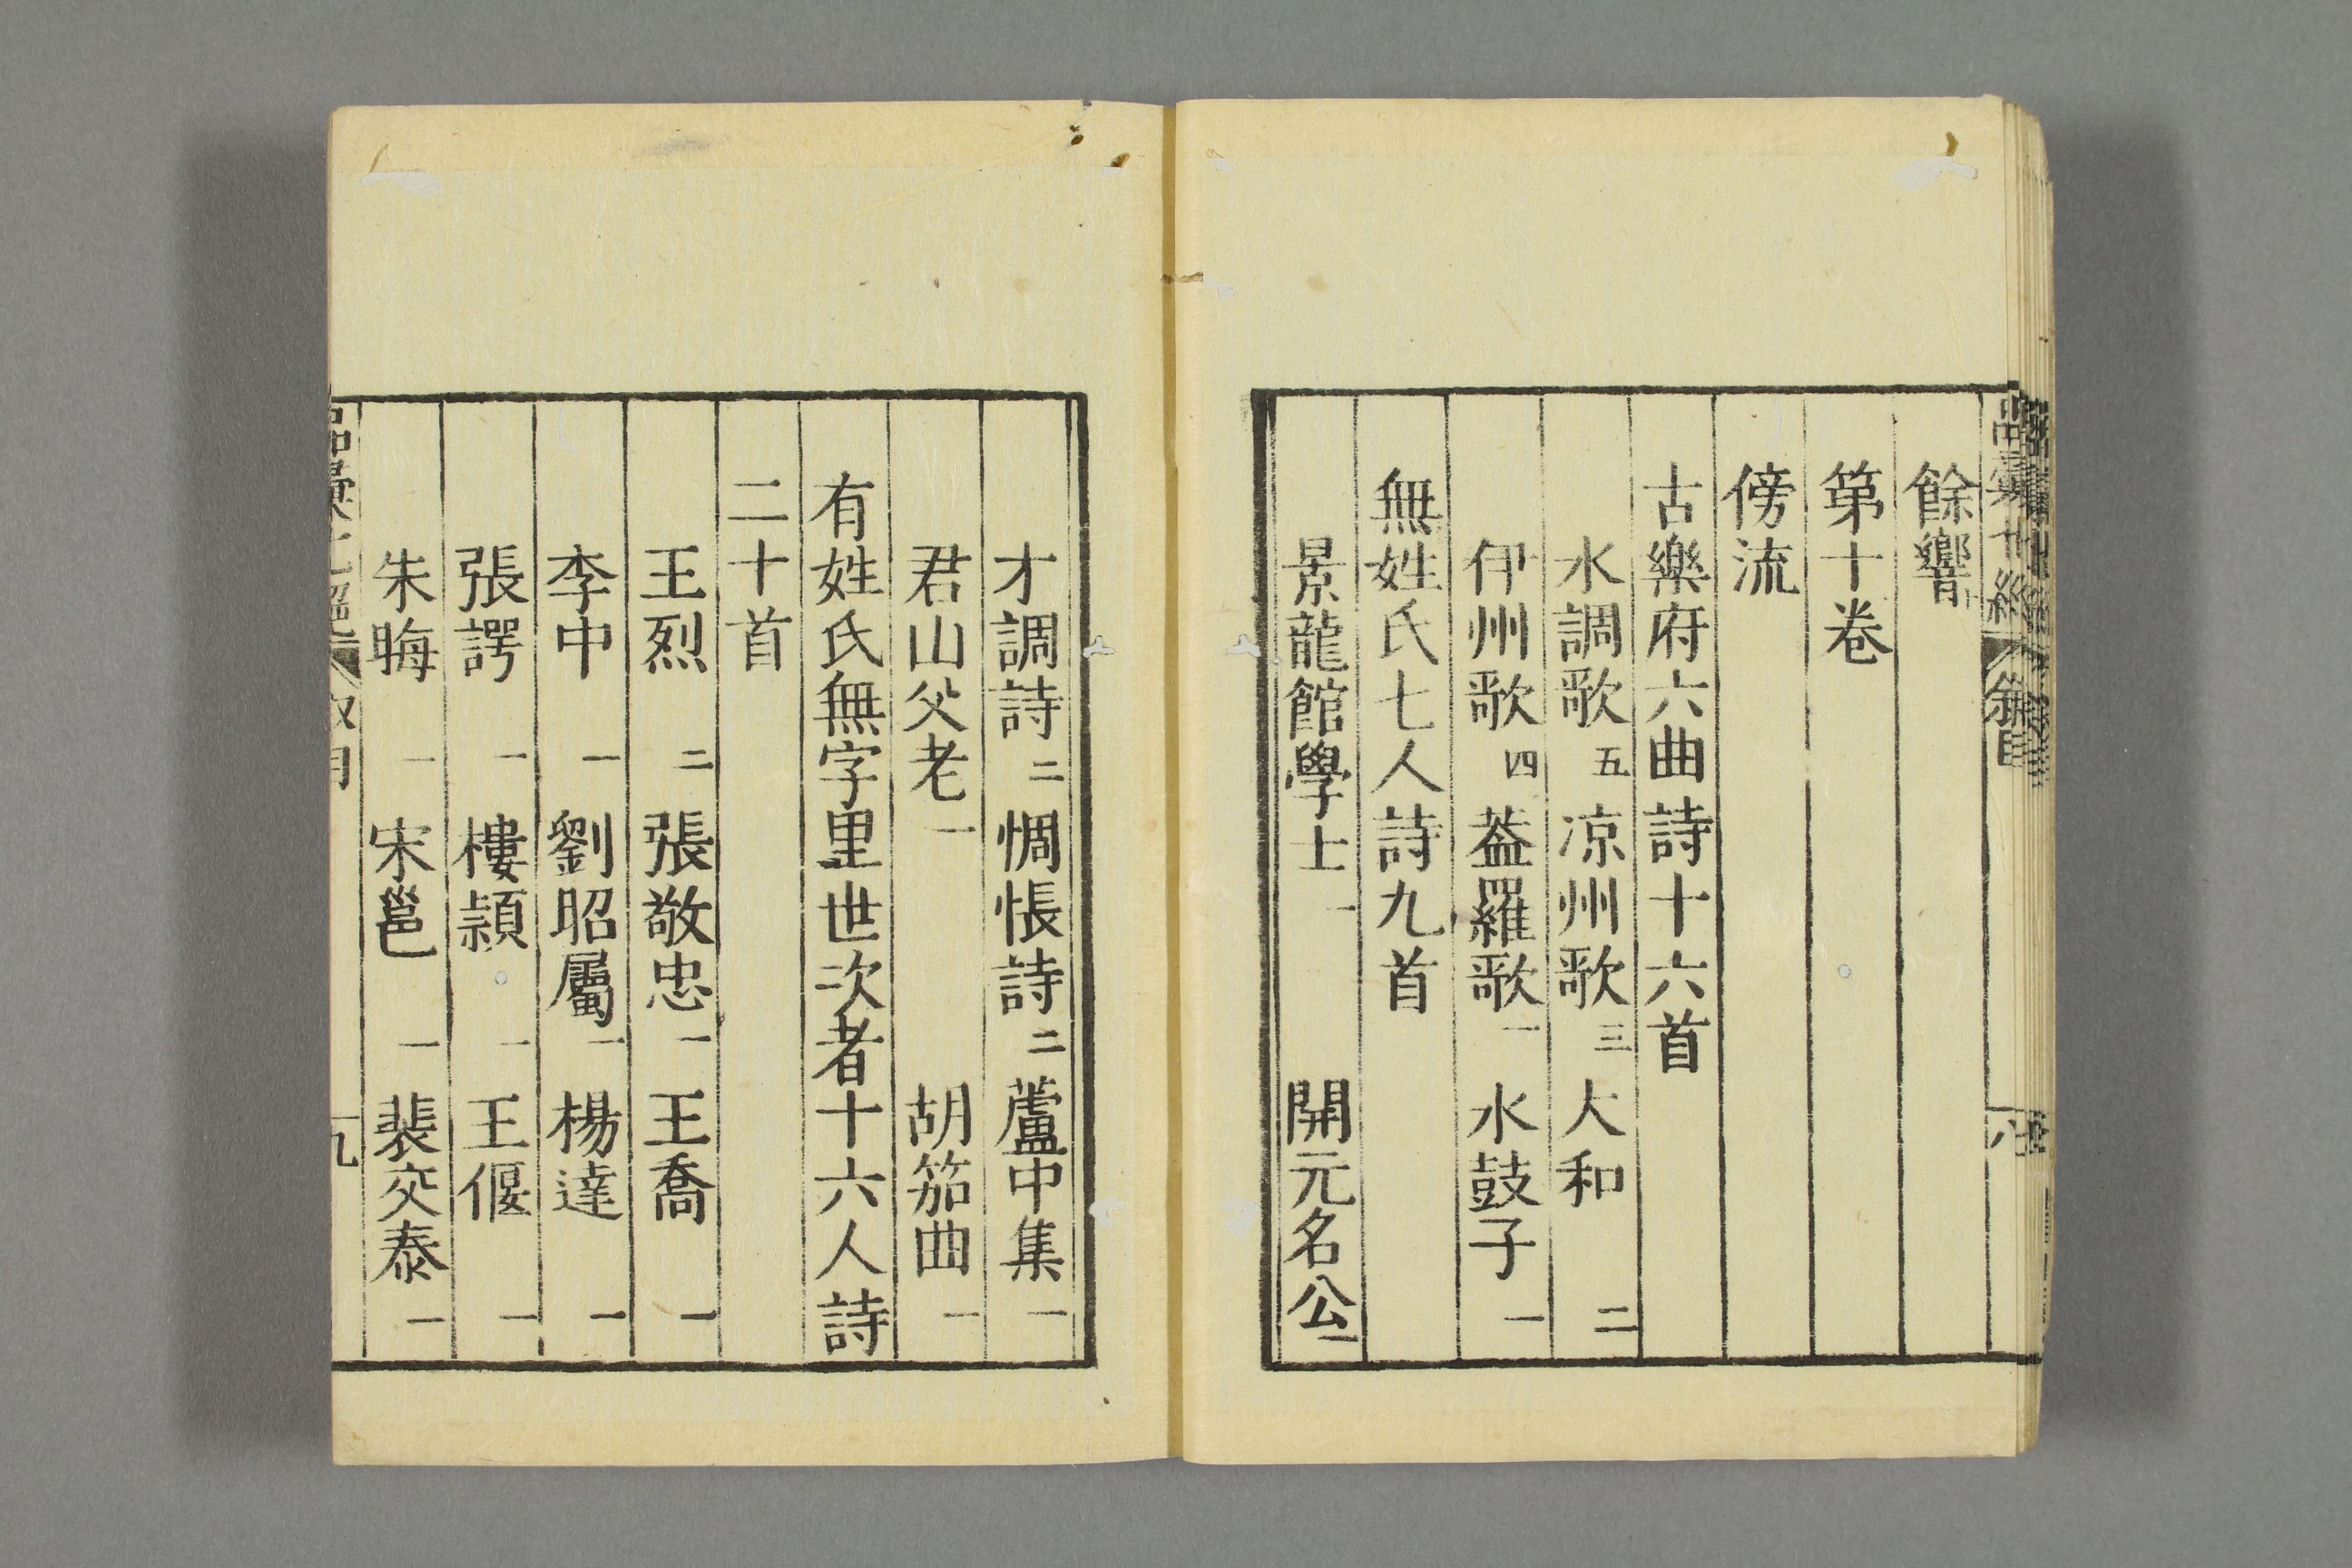 餘響
第十卷
傍流
古樂府六曲詩十六首
水調歌五 凉州歌三 大和 二
伊州歌四 蓋羅歌一 水鼓子 一
無姓氏七人詩九首
景龍館學士一 開元名公一
才調詩二 惆悵詩二 蘆中集一
君山父老一 胡笳曲一
有姓氏無字里世次者十六人詩
二十首
王烈 二 張敬忠一 王喬 一
李中 一 劉昭屬一 楊達 一
張諤 一 樓頴 一 王偃 一
朱晦 一 宋邕 一 裴交泰一